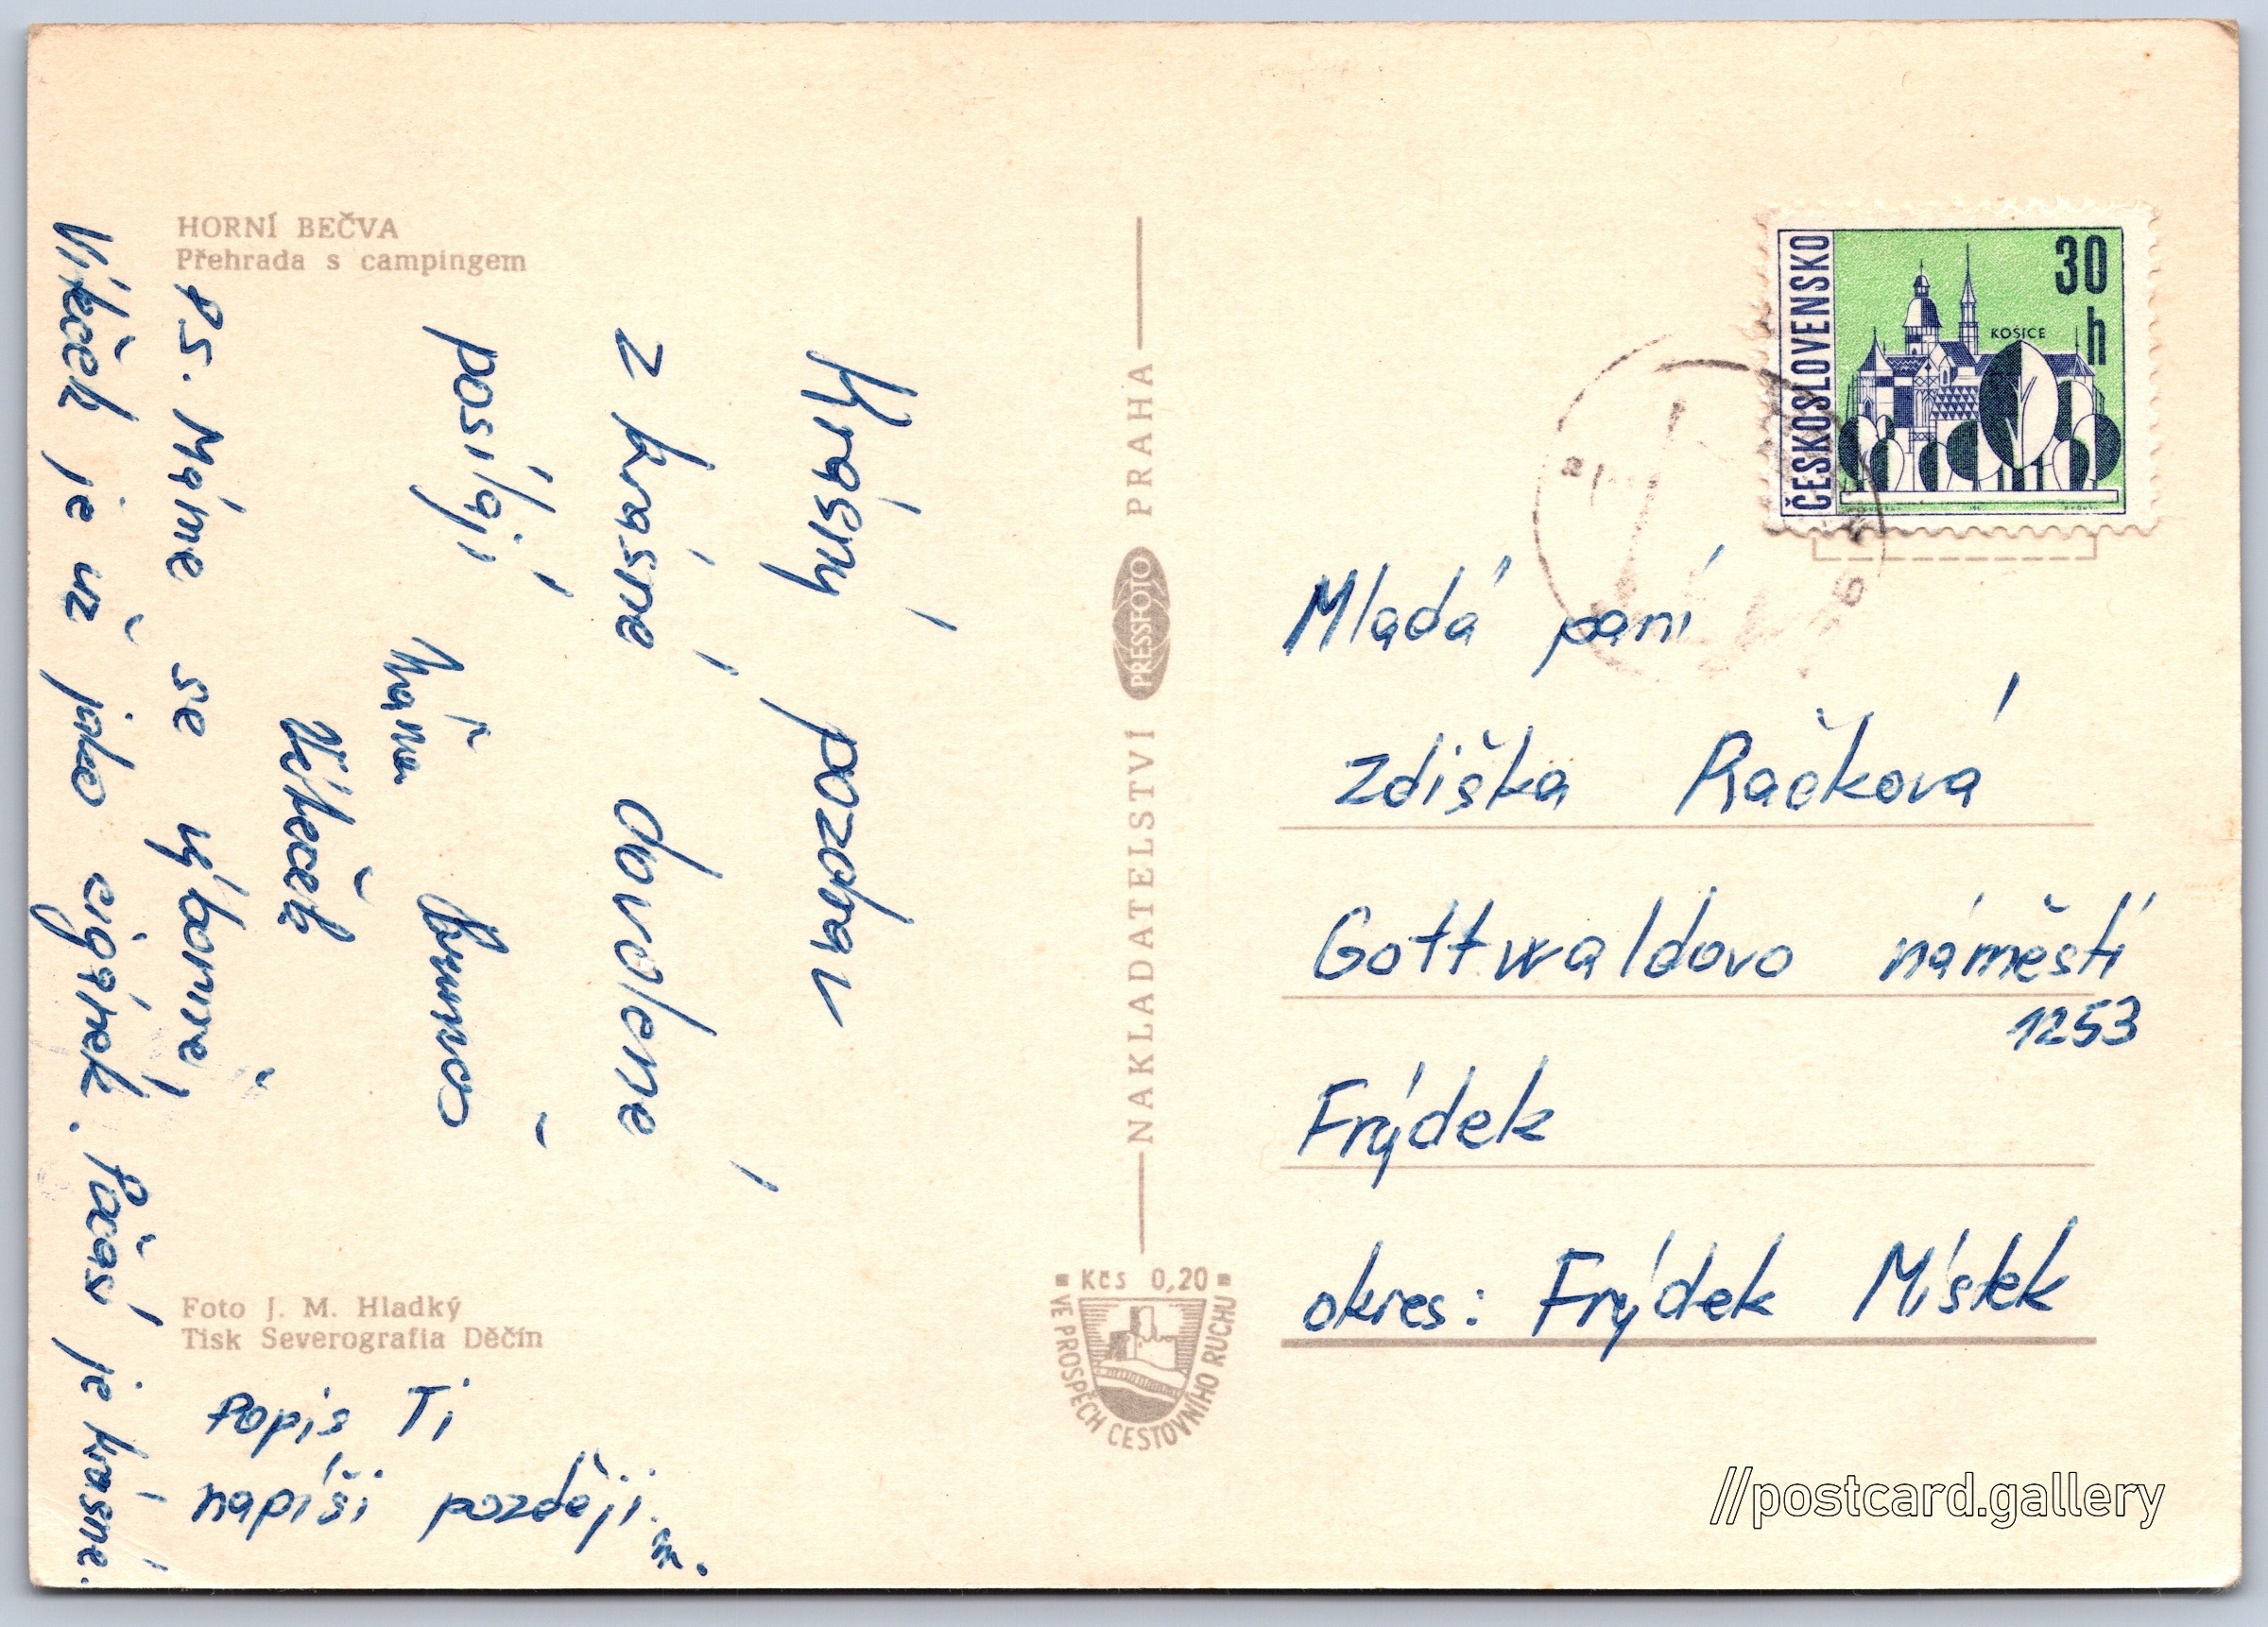 HORNÍ BEČVA
Přehrada s campingem
Krásný pozdrav
z krásné dovolené
posílají
Mařka
Víteček
P.S. Máme se výborně
Víteček je už jako cigánek. Počasí je krásné.
Popis Ti
napíši později.
m.
Foto J. M. Hladký
Tisk Severografia Děčín
NAKLADATELSTVÍ PRESSFOTO PRAHA
Kčs 0,20
VE PROSPĚCH CESTOVNÍHO RUCHU
ČESKOSLOVENSKO
30
h
KOŠICE
Mladá paní
Zdiška Račková
Gottwaldovo náměstí
1253
Frýdek
okres: Frýdek Místek
//postcard.gallery